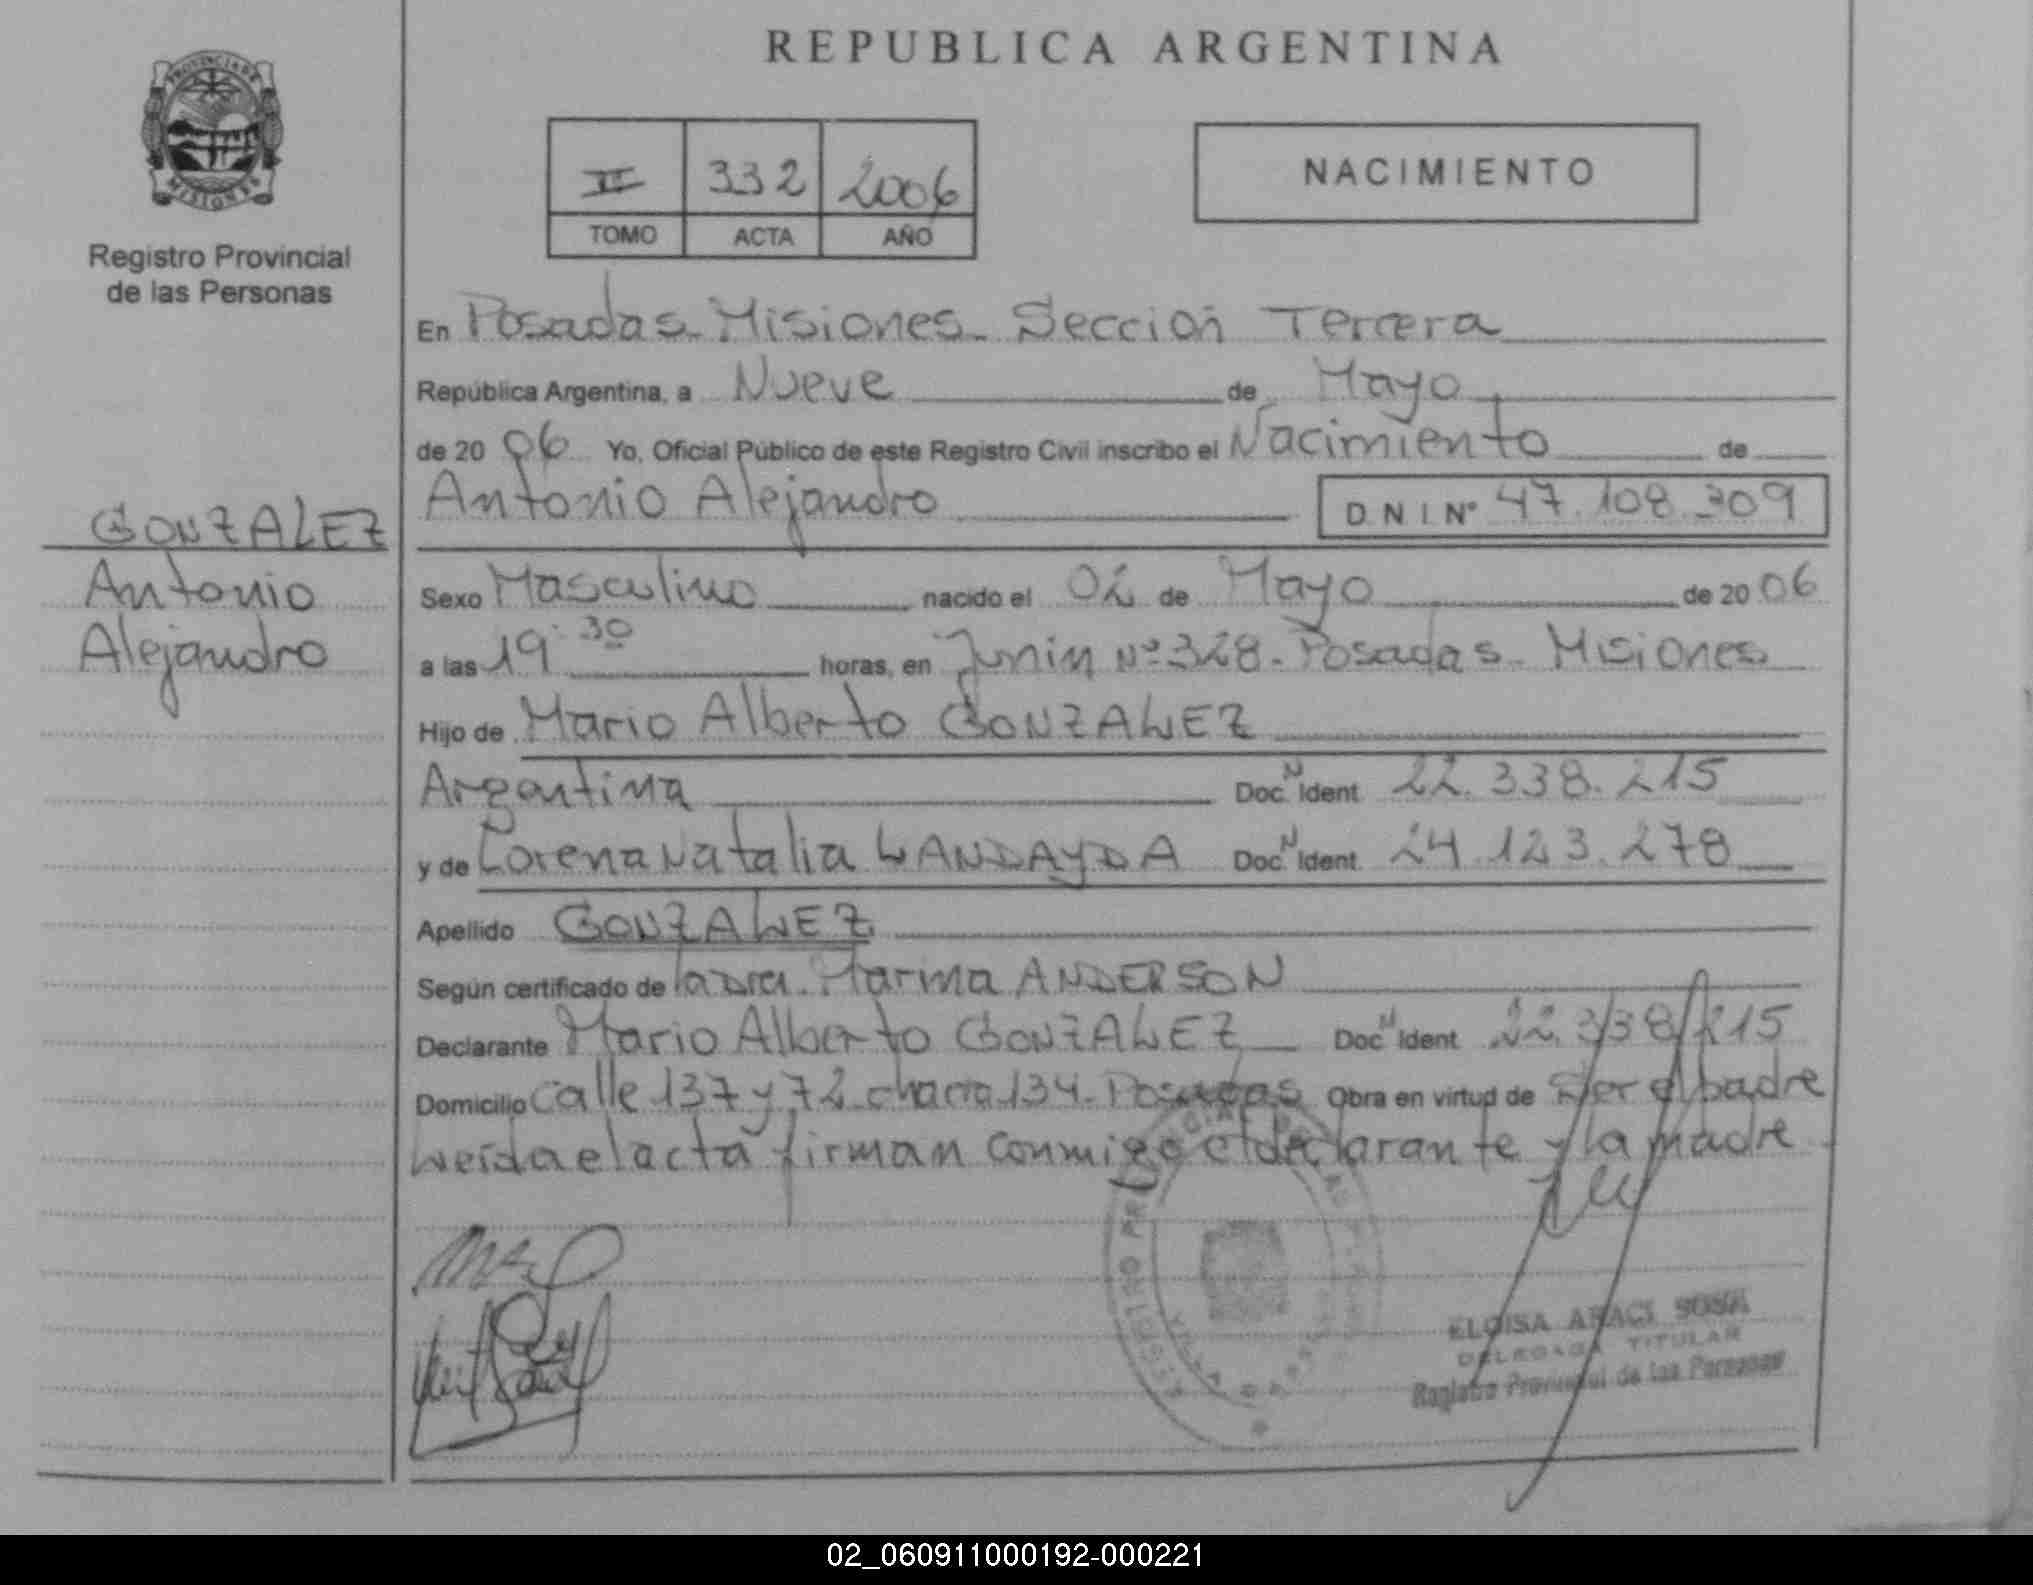 REPUBLICA ARGENTINA
PROVINCIA DE
MISIONES
Registro Provincial
de las Personas
II 332 2006
TOMO ACTA AÑO
NACIMIENTO
En Posadas - Misiones - Sección Tercera
República Argentina, a Nueve de Mayo
de 20 06 Yo, Oficial Público de este Registro Civil inscribo el Nacimiento de
Antonio Alejandro D N I Nº 47.108.309
GONZALEZ
Antonio
Alejandro
Sexo Masculino nacido el 02 de Mayo de 20 06
a las 19:30 horas, en Junin Nº 328 - Posadas - Misiones
Hijo de Mario Alberto GONZALEZ
Argentina Doc. N Ident 22.338.215
y de Lorena Natalia LANDAYDA Doc. N Ident. 24.123.278
Apellido GONZALEZ
Según certificado de la Dra. Marina ANDERSON
Declarante Mario Alberto GONZALEZ Doc N Ident 22.338.215
Domicilio Calle 137 y 72 chacra 134 - Posadas Obra en virtud de Ser el padre
Leída el acta firman conmigo el declarante y la madre
ELOISA ARACI SOSA
DELEGADA TITULAR
Registro Provincial de las Personas
02_060911000192-000221